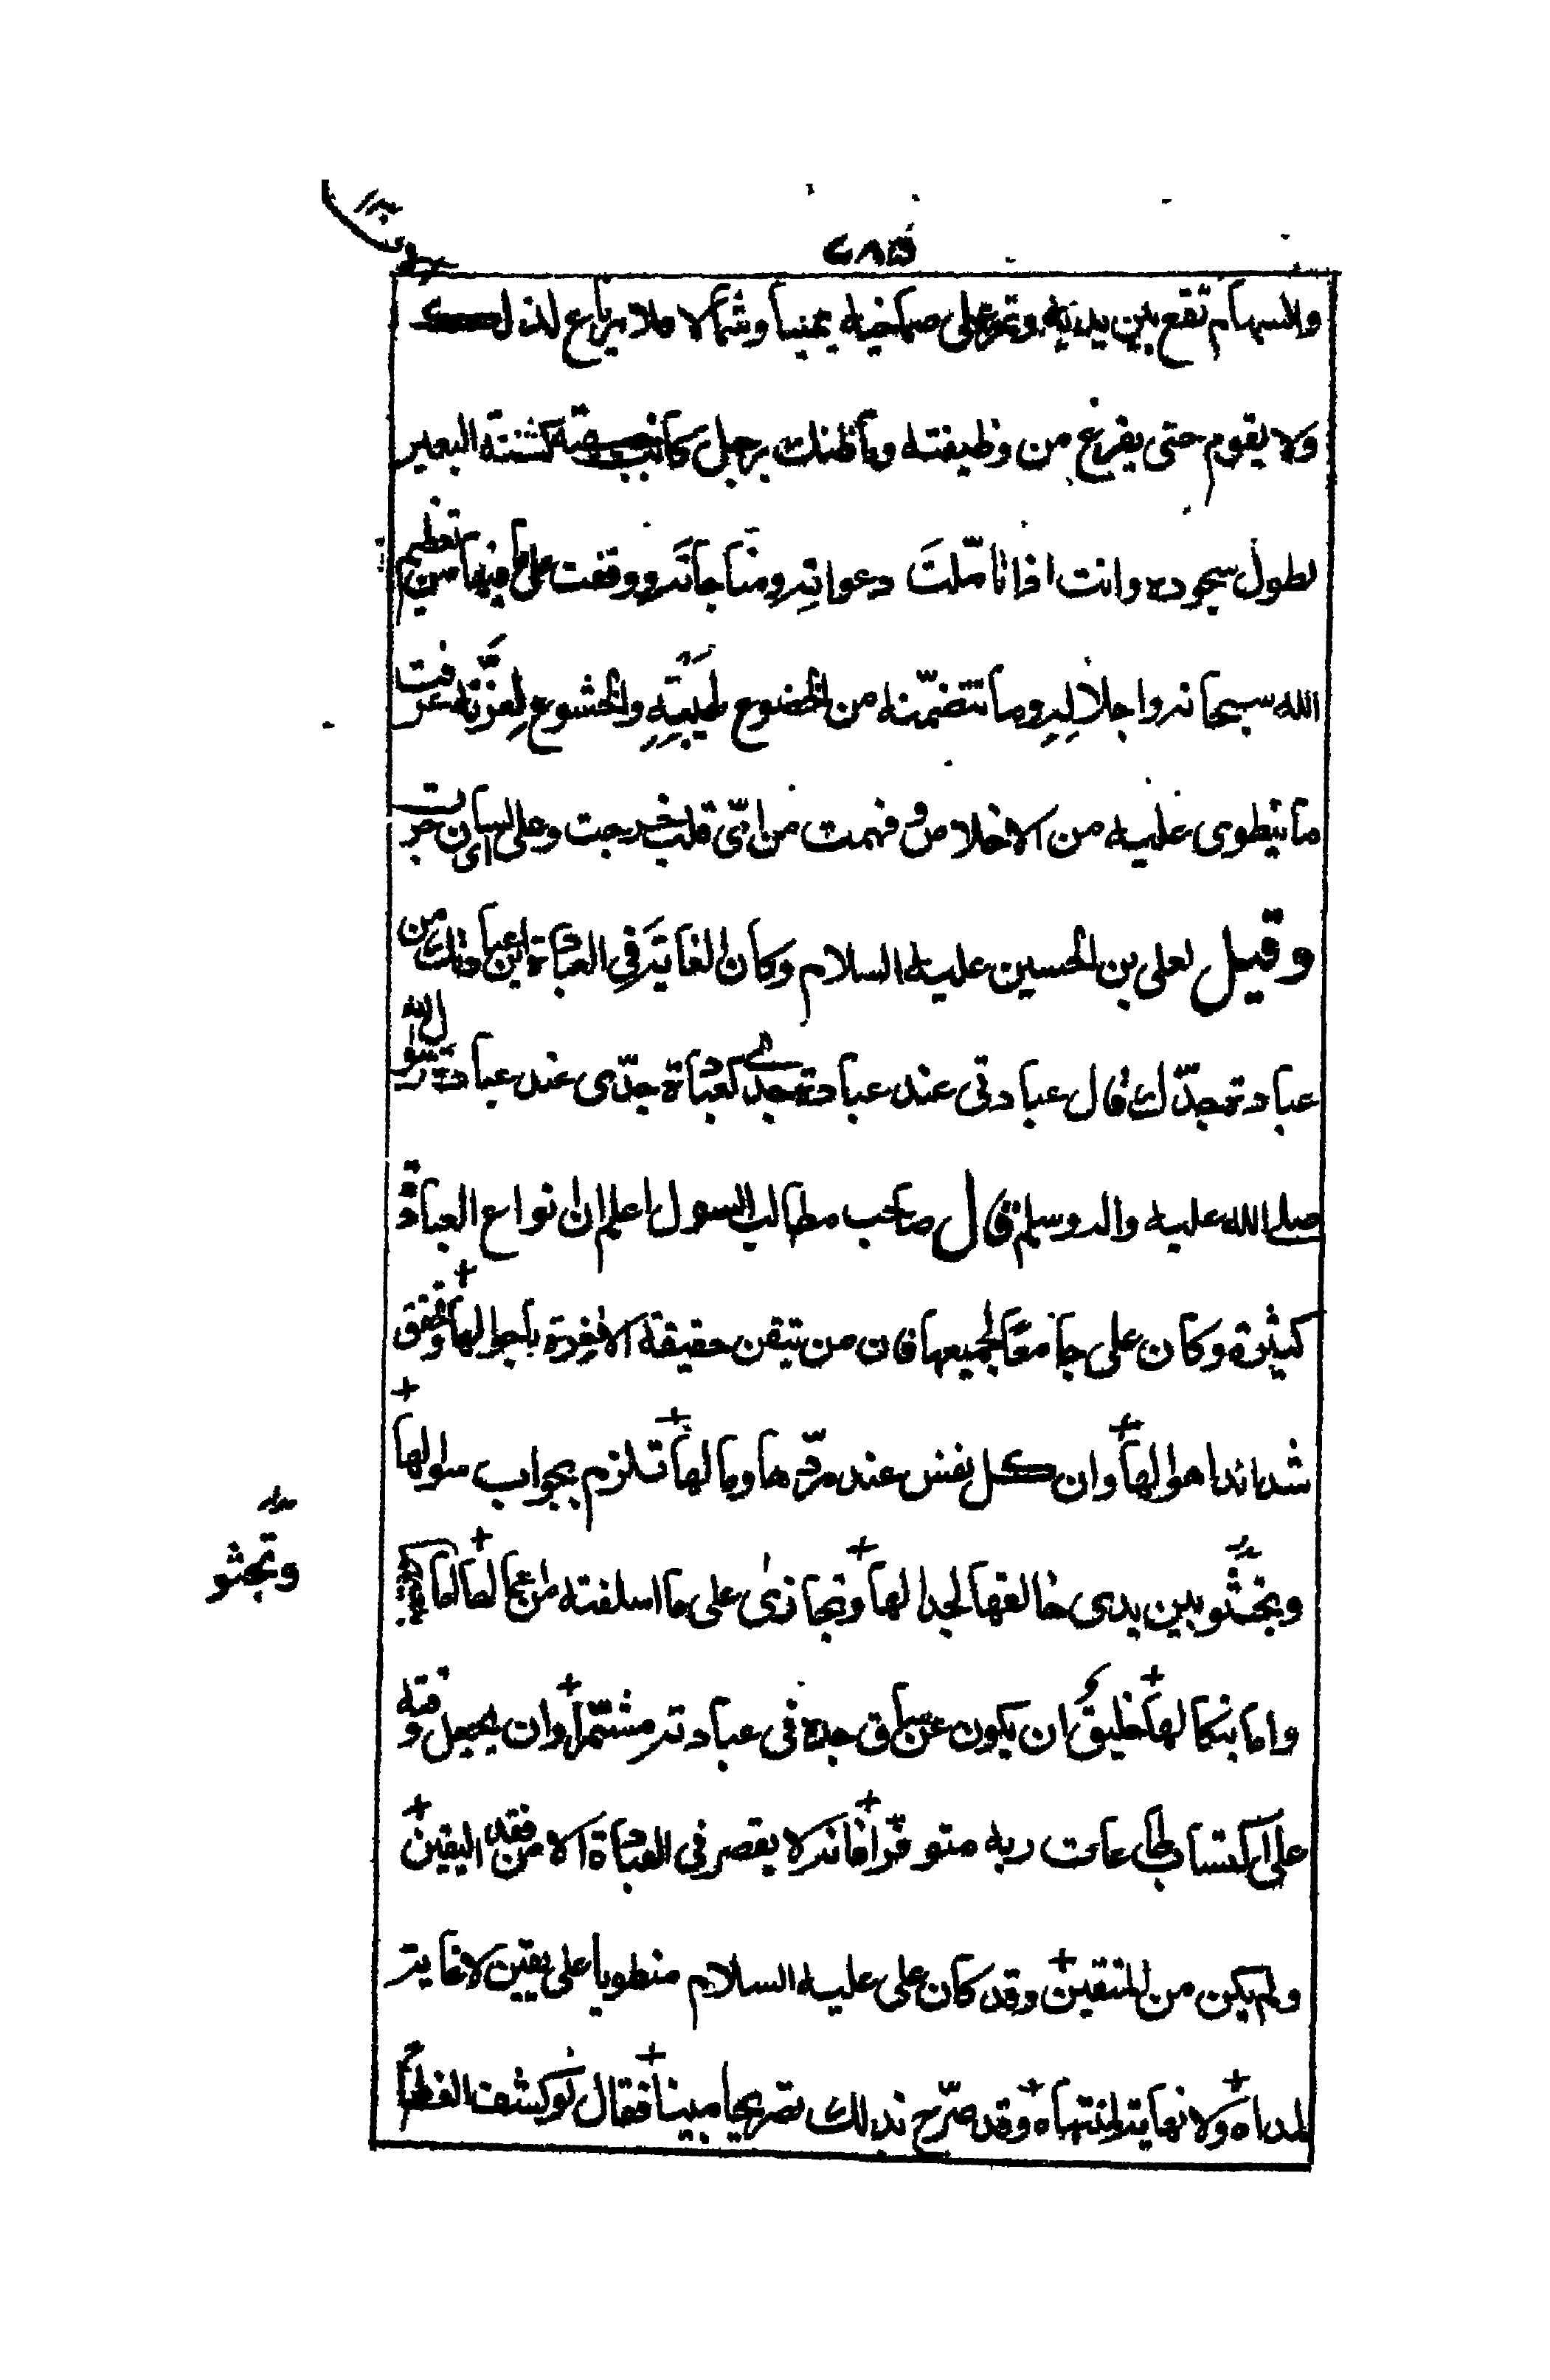 ٢٨٥
والسهام تقع بين يديه وتمر على صماخيه يمينا وشمالا فلا يرتاع لذلك
ولا يقوم حتى يفرغ من وظيفته وما ظنك برجل كانت جبهته كثفنة البعير
لطول سجوده وانت اذا تأمّلتَ دعواتِه ومناجاتَه ووقفت على ما فيها من تعظيم
الله سبحانه واجلالِه وما تتضمّنه من الخضوع لهَيْبَتِهِ والخشوع لِعزّتِه عرفت
ما ينطوى عليه من الاخلاص وفهمت من اىّ قلب خرجت وعلى اى لسان جرت
وقيل لعلى بن الحسين عليه السلام وكان الغايَة فى العبادة اين عبادتك من
عبادة جدّك قال عبادتى عند عبادة جدّى كعبادة جدّى عند عبادة رسول الله
صلى الله عليه واله وسلم قال صاحب مطالب السول اعلم ان انواع العبادة
كثيرة وكان على جامعًا لجميعها فان من تيقن حقيقة الاخرة باحوالها وتحقق
شدائد اهوالها وان كل نفس عند مردّها ومالها تلزم بجواب سوالها
وتجثُو بين يدى خالقها لجدالها وتجازى على ما اسلفته من اعمالها اما
واما بنكالها خليقٌ ان يكون عن ساق جده فى عبادته مشتمرا وان يجعل وقته
على اكتساب طاعات ربه متوفّرا فانه لا يقصر فى العبادة الا من فقد اليقين
ولم يكن من المتقين وقد كان على عليه السلام منطويا على يقين لا غاية
لمداه ولا نهاية لمنتهاه وقد صرّح بذلك تصريحا مبينا فقال لو كشف الغطاء
وتَجثو